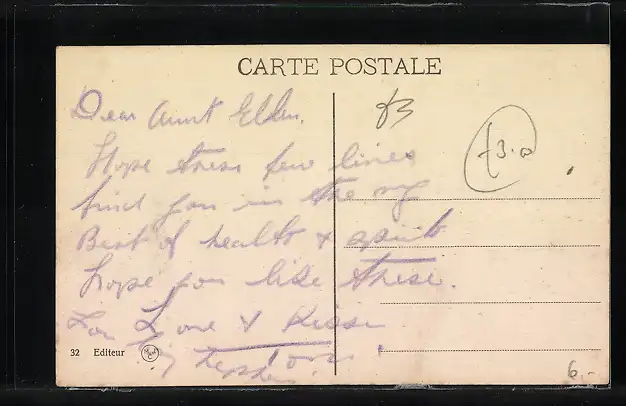 CARTE POSTALE
£3
£3.0
Dear Aunt Ellen,
Hope these few lines
find you in the vy
Best of health & spirits
hope you like these.
Love & Kisses
32 Editeur
Tom
6.-